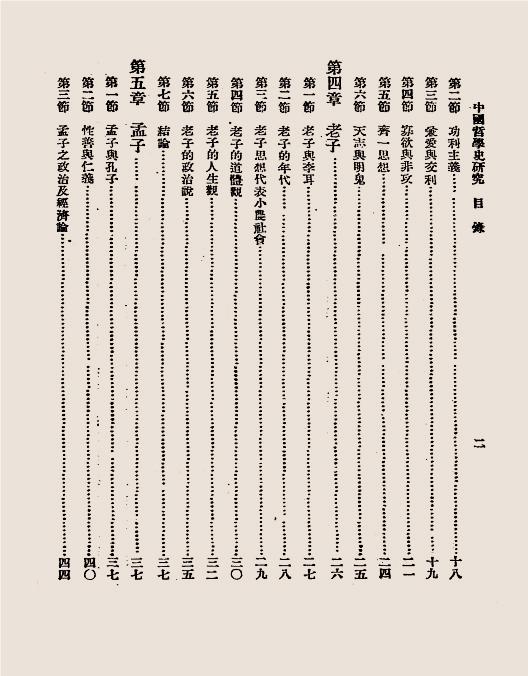 中國哲學史研究 目錄 二
第二節 功利主義 十八
第三節 兼愛與交利 十九
第四節 寡欲與非攻 二一
第五節 齊一思想 二四
第六節 天志與明鬼 二五
第四章 老子 二六
第一節 老子與李耳 二七
第二節 老子的年代 二八
第三節 老子思想代表小農社會 二九
第四節 老子的道體觀 三〇
第五節 老子的人生觀 三二
第六節 老子的政治說 三五
第七節 結論 三七
第五章 孟子 三七
第一節 孟子與孔子 三七
第二節 性善與仁義 四〇
第三節 孟子之政治及經濟論 四四